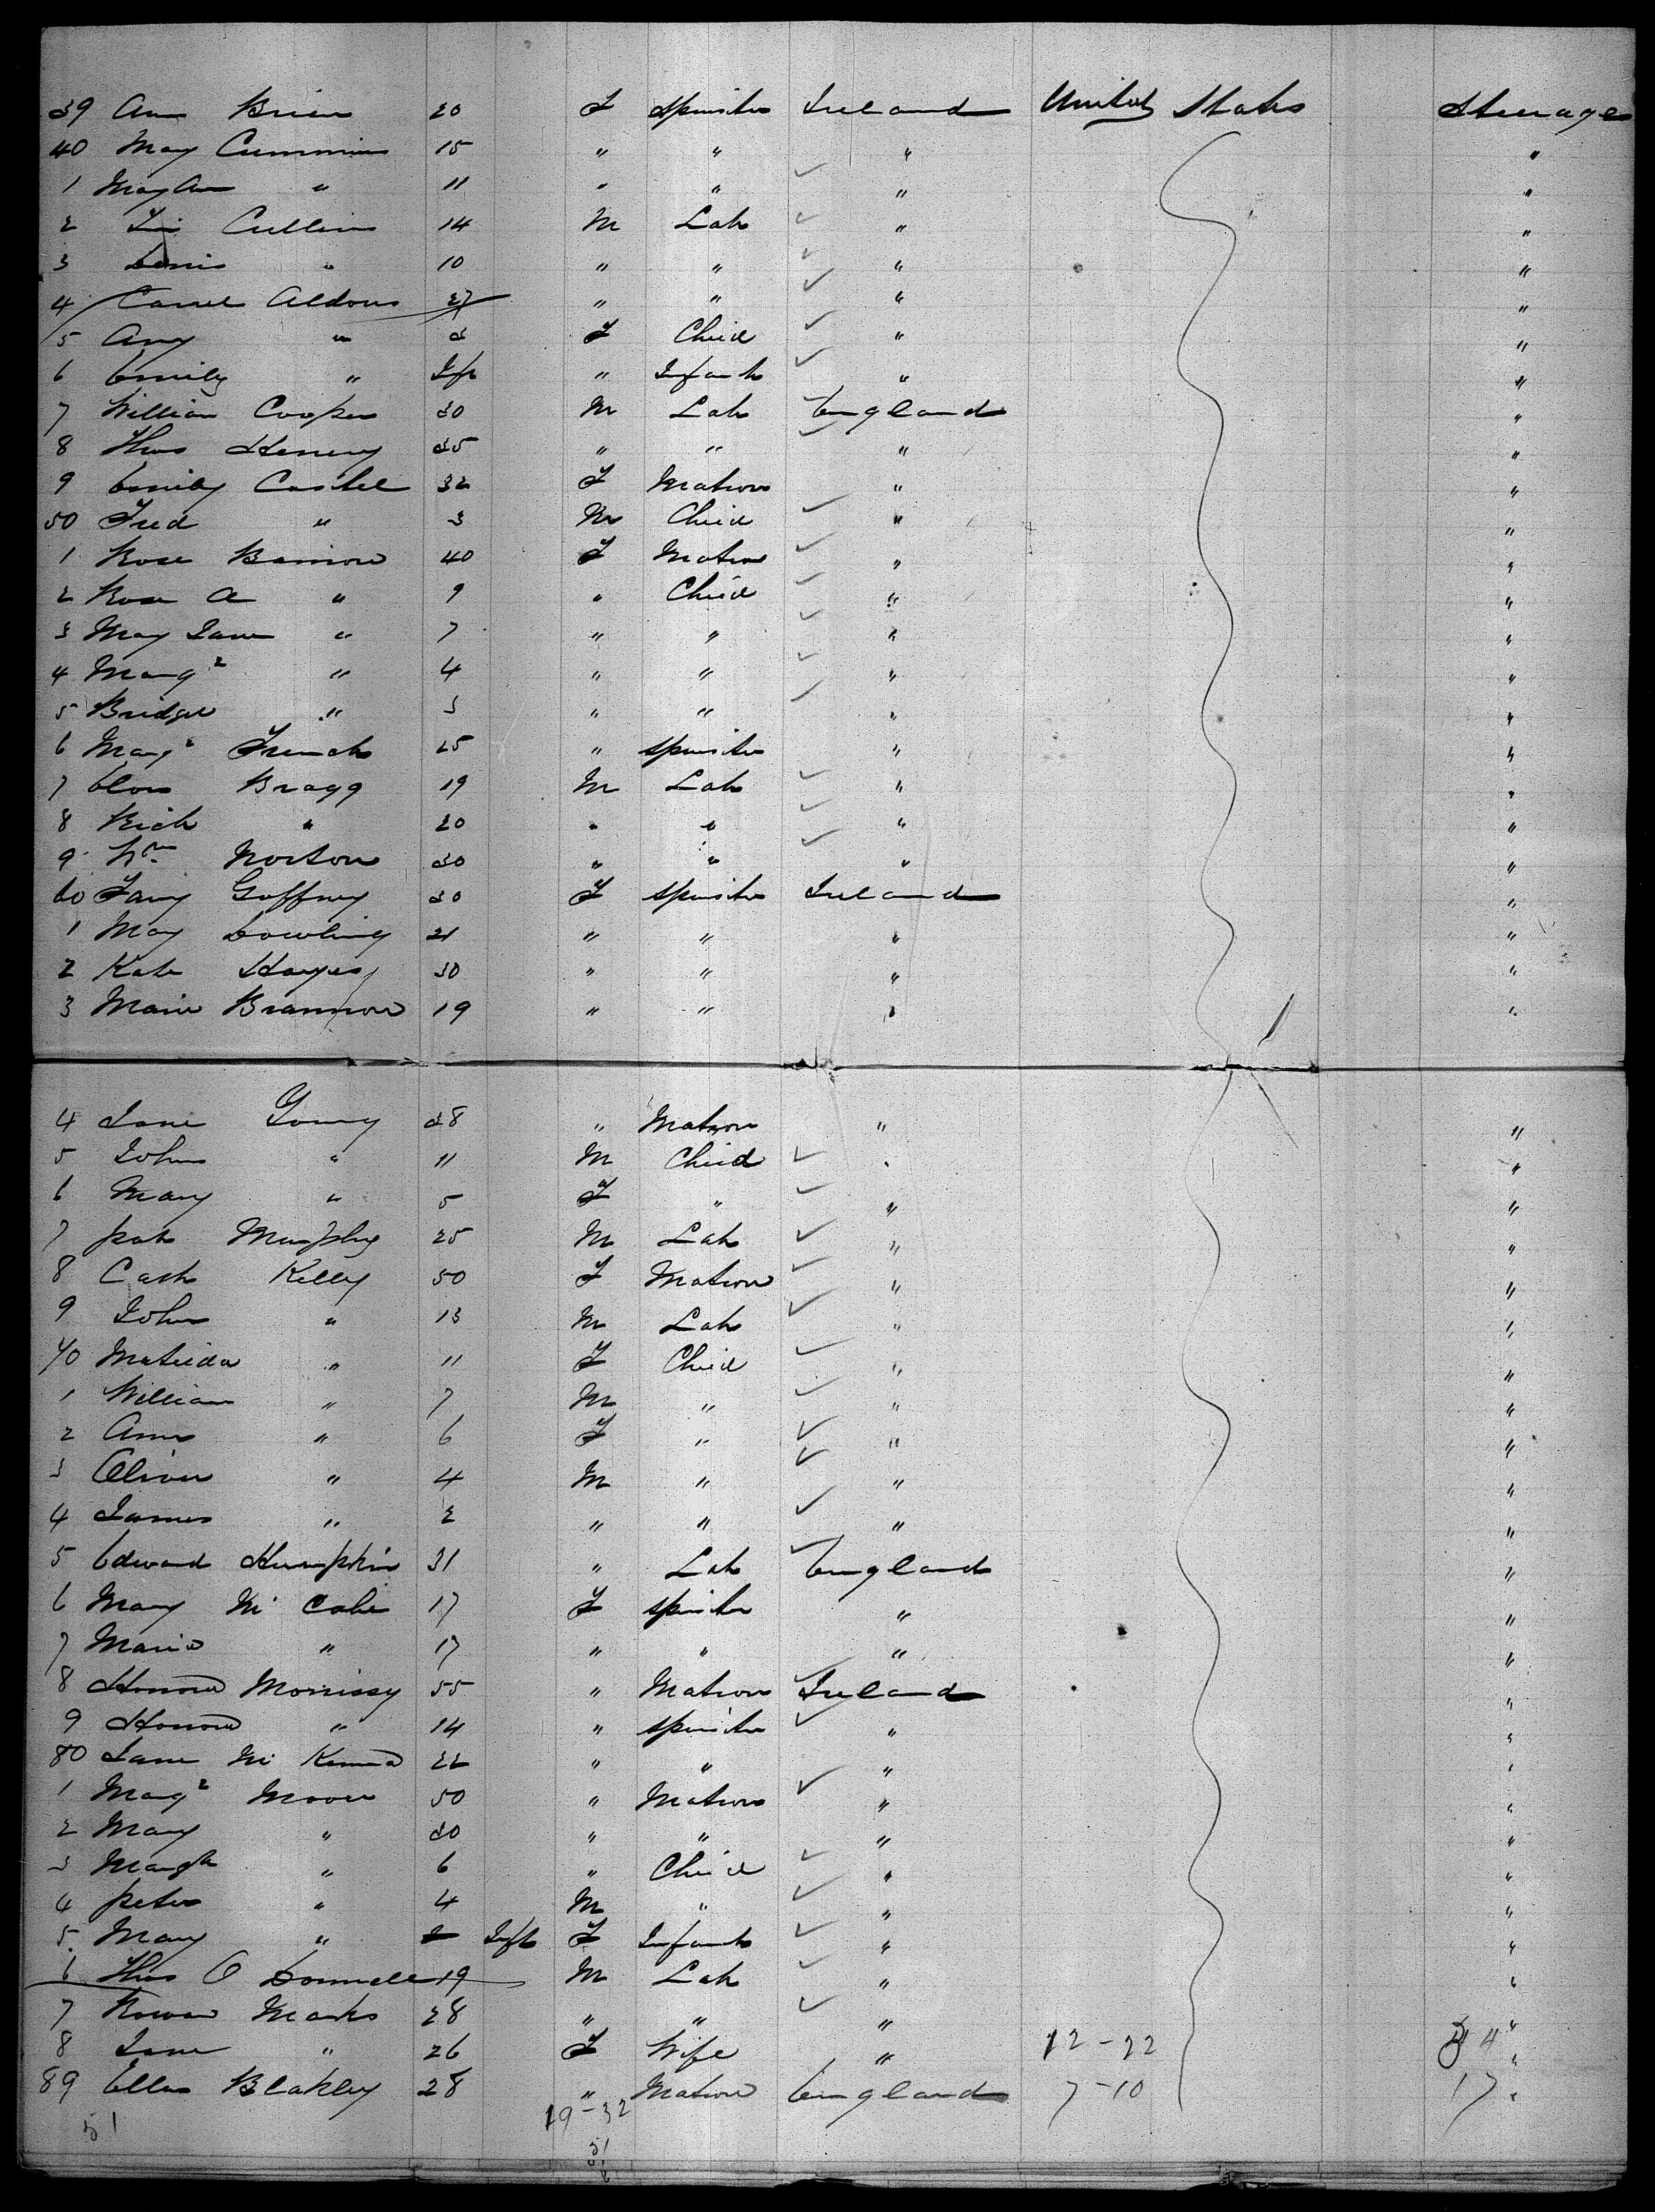 39 Ann Brien 20 F Spinster Ireland United States Steerage
40 Mary Cummins 15 " " " "
1 Mary Ann " 11 " " " "
2 Tim Cullins 14 M Lab " "
3 Denis " 10 " " " "
4 Aldous 27 " " " "
5 Amy " 3 F Child " "
6 Emily " Inft " Infant " "
7 William Cooper 30 M Lab England "
8 Thos Henery 35 " " " "
9 Emily Castel 32 F Matron " "
50 Fred " 3 M Child " "
1 Rose 40 F Matron " "
2 Rose A " 9 " Child " "
3 May Jane " 7 " " " "
4 Margt " 4 " " " "
5 Bridget " 3 " " " "
6 Margt French 25 " Spinster " "
7 Bragg 19 M Lab " "
8 Rich " 20 " " " "
9 Wm Norton 30 " " " "
60 Fany Gaffney 30 F Spinster Ireland "
1 May Dowling 21 " " " "
2 Kate Hayes 30 " " " "
3 Maria Brannon 19 " " " "
4 Jane Young 38 " Matron " "
5 John " 11 M Child " "
6 Mary " 5 F " " "
7 Pat Murphy 25 M Lab " "
8 Cath Kelly 50 F Matron " "
9 John " 13 M Lab " "
70 Matilda " 11 F Child " "
1 William " 7 M " " "
2 Anne " 6 F " " "
3 Oliver " 4 M " " "
4 James " 2 " " " "
5 Edward 31 " Lab England "
6 Mary Mc Cabe 17 F Spinster " "
7 Maria " 17 " " " "
8 Honora Morrissy 55 " Matron Ireland "
9 Honora " 14 " Spinster " "
80 Jane Mc Kenna 22 " " " "
1 Margt Moore 50 " Matron " "
2 Mary " 30 " " " "
3 Margt " 6 " Child " "
4 Peter " 4 M " " "
5 Mary " 2 Inft F Infant " "
6 Thos O Donnell 19 M Lab " "
7 Marks 28 " " " "
8 Jane " 26 F Wife " 12-22 34 "
89 Ellen Blakley 28 " Matron England 7-10 17 "
51 19-32
51